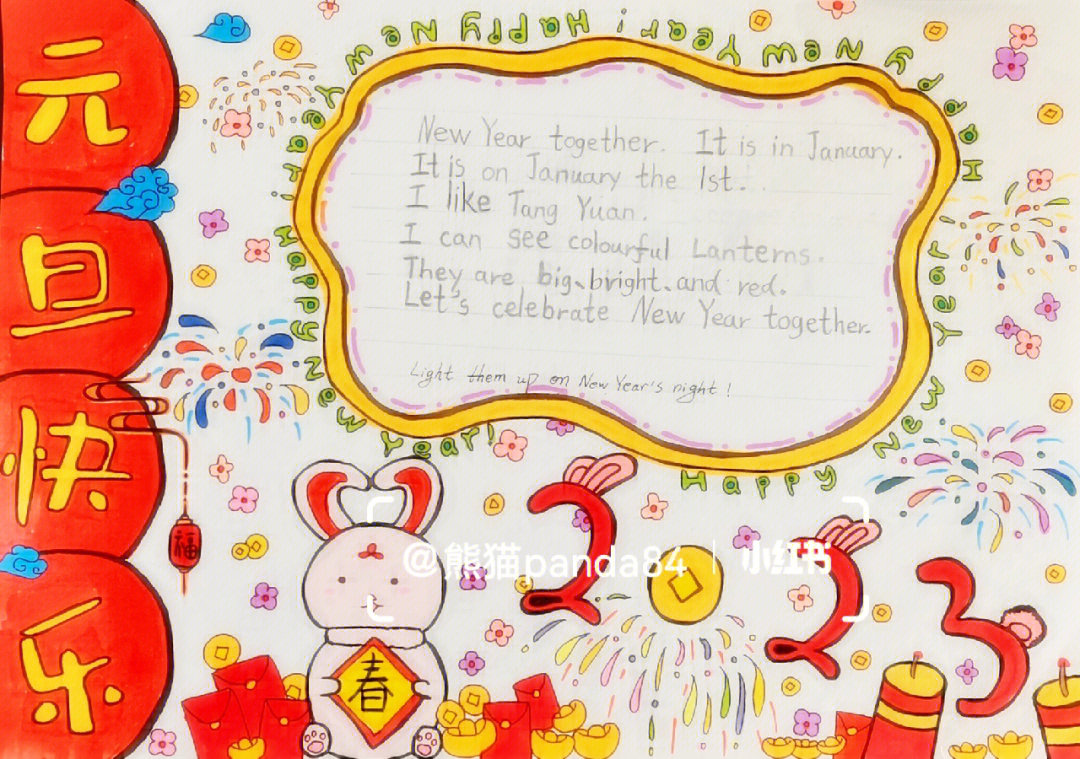 元
旦
快
乐
Happy New Year! Happy New Year! Happy New Year! Happy New Year
New Year together. It is in January.
It is on January the 1st.
I like Tang Yuan.
I can see colourful Lanterns.
They are big、bright、and red.
Let's celebrate New Year together.
Light them up on New Year's night!
福
@熊猫panda84 | 小红书
2023
春